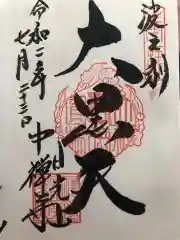 波之利
大黒天
日光山
中禅寺
令和二年
七月二十三日